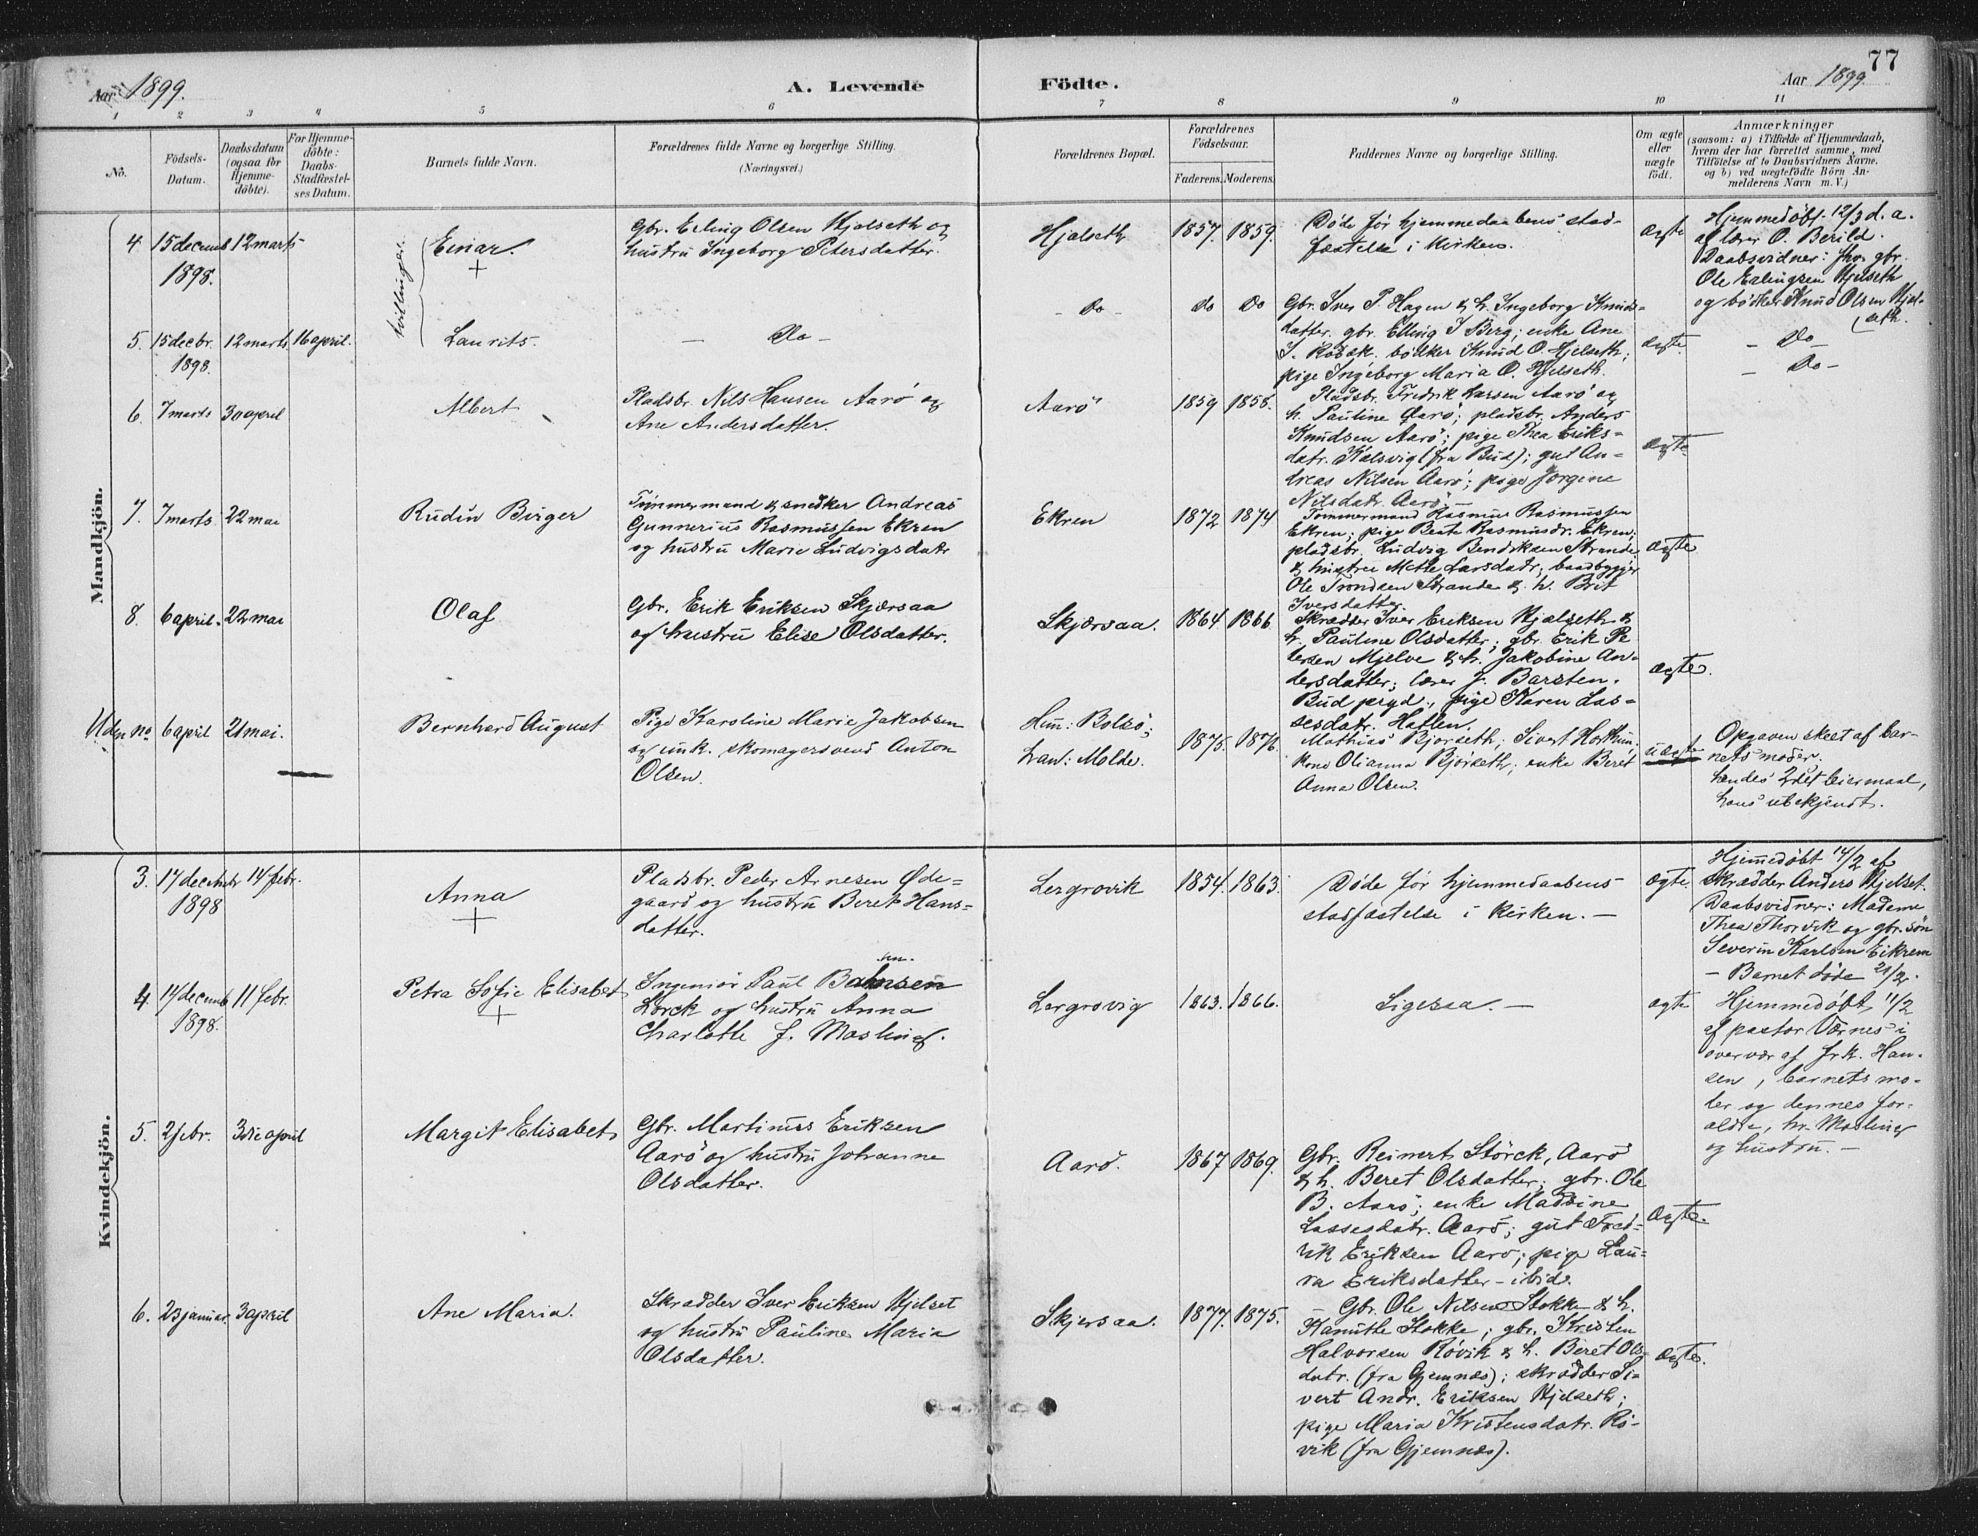 77
Aar 1899.
A. Levende Födte.
Aar 1899
1 2 3 4 5 6 7 8 9 10 11
No.
Födsels-
Datum.
Daabsdatum
(ogsaa for
Hjemme-
döbte).
For Hjemme-
döbte:
Daabs-
Stadfæstel-
ses Datum.
Barnets fulde Navn.
Forældrenes fulde Navne og borgerlige Stilling.
(Næringsvei.)
Forældrenes Bopæl.
Forældrenes
Födselsaar.
Faderens. Moderens.
Faddernes Navne og borgerlige Stilling.
Om ægte
eller
uægte
födt.
Anmærkninger
(saasom: a) i Tilfælde af Hjemmedaab,
hvem der har forrettet samme, med
Tilföielse af to Daabsvidners Navne.
og b) ved uægtefödte Börn An-
melderens Navn m. V.)
Mandkjön.
4. 15 decemb 12 marts
1898.
tvillinger.
Einar.
+
Gbr. Erling Olsen Hjelseth og
hustru Ingeborg Petersdatter.
Hjelseth
1857. 1859.
Döde för hjemmedaabens stad-
fæstelse i kirken.
ægte
Hjemmedøbt 12/3 d. a.
af lærer O. Berild.
Daabsvidner: gbr.
Ole Erlingsen Hjelseth
og bödker Knud Olsen Hjel-
seth.
5. 15 decbr. 12 marts. 16 april.
1898.
Laurits.
— Do —
- Do -
Do Do
Gbr. Iver P. Hagen & h. Ingeborg Knuds-
datter. gbr. Elling I Berg; enke Ane
bödker Knud O. Hjelseth;
pige Ingeborg Maria O. Hjelseth.
ægte.
- Do -
- Do -
6. 7 marts 30 april
Albert
Pladsbr. Nils Hansen Aarö og
Ane Andersdatter.
Aarö
1859 1858.
Pladsbr. Fredrik Larsen Aarö og
h. Pauline Aarö; pladsbr. Anders
Knudsen Aarö; pige Thea Eriks-
datr. Kalsvig (fra Bud); gut An-
dreas Nilsen Aarö; pige Jorgine
Nilsdatr. Aarö. -
ægte.
7. 7 marts 22 mai
Rudin Birger
Tömmermand & snedker Andreas
Gunnerius Rasmussen Ekren
og hustru Marie Ludvigsdatr
Ekren
1872 1874
Tömmermand Rasmus Rasmussen
Ekren; pige Beate Rasmusdr. Ekren;
pladsbr. Ludvig Bendiksen Strande
& hustru Mette Larsdatr; baadbygger
Ole Trondsen Strande & h. Brit
Iversdatter.
ægte
8. 6 april. 22 mai
Olaf
Gbr. Erik Eriksen Skjærsaa
og hustru Elise Olsdatter.
Skjærsaa.
1864. 1866
Skrædder Iver Eriksen Hjelseth &
h. Pauline Olsdatter; gbr. Erik Pe
tersen Mjelve & h. Jakobine An-
dersdatter; lærer J. Barsten.
Bud pryd., pige Karen Las-
sesdatr. Hatlen.
ægte.
Uden no. 6 april 21 mai.
Bernhard August
Pige Karoline Marie Jakobsen
og unk. skomagersvend Anton
Olsen.
Hun: Bolsö;
Han: Molde.
1875. 1876.
Mathias Bjorseth; Sivert
kone Olianna Bjorseth; enke Beret
Anna Olsen.
uægte
Opgaven skeet af bar-
nets moder.
hendes 2det leiermaal,
hans ubekjendt.
Kvindekjön.
3. 17 decemb 14 febr.
1898
Anna
+
Pladsbr. Peder Arnesen Öde-
gaard og hustru Beret Hans-
datter.
Lergrovik
1854. 1863.
Döde för hjemmedaabens
stadfæstelse i kirken. -
ægte.
Hjemmedöbt 14/2 af
skrædder Anders Hjelset.
Daabsvidner: Madame
Thea Thorvik og gbr. sön
Severin Karlsen Eikrem
- Barnet döde 21/2.
4 14 decemb 11 febr.
1898.
Petra Sofie Elisabet
+
Ingeniör Paul
Lorck og hustru Anna
Charlotte J. Masling.
Lergrovig
1863. 1866.
Ligesaa. -
ægte
Hjemmedöbt 11/2
af pastor Værnes i
overvær af frk. Han-
sen, barnets mo-
der og dennes for-
ældre, hr. Masling
og hustru. -
5. 2 febr. 3die april
Margit Elisabet
Gbr. Martinus Eriksen
Aarö og hustru Johanne
Olsdatter.
Aarö.
1867 1869.
Gbr. Reinert Störck, Aarö
& h. Beret Olsdatter; gbr. Ole
B. Aarö; enke Madsine
Lassesdatr. Aarö; gut Fred-
rik Eriksen Aarö; pige Lau-
ra Eriksdatter - ibid.
ægte.
6. 23 januar. 3 april
Ane Maria.
Skrædder Iver Eriksen Hjelset
og hustru Pauline Maria
Olsdatter.
Skjersaa.
1877. 1875.
- Gbr. Ole Nilsen Stokke & h.
Kanutte Stokke; gbr. Kristen
Halvorsen Rövik & h. Beret Ols-
datr. (fra Gjemnæs); skrædder Si-
vert Andr. Eriksen Hjelseth;
pige Maria Kristensdatr. Rö-
vik (fra Gjemnæs).
ægte.